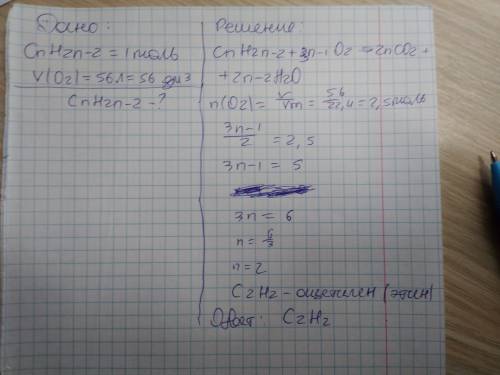 Дано:
CnH2n-2 = 1 моль
V(O2) = 56л = 56 дм3
CnH2n-2 - ?
Решение:
CnH2n-2 + 3n-1 O2 → 2nCO2 +
+ 2n-2 H2O
n(O2) = V/Vm = 56/22,4 = 2,5 моль
3n-1/2 = 2,5
3n-1 = 5
3n = 6
n = 6/3
n = 2
C2H2 - ацетилен (этин)
Ответ: C2H2